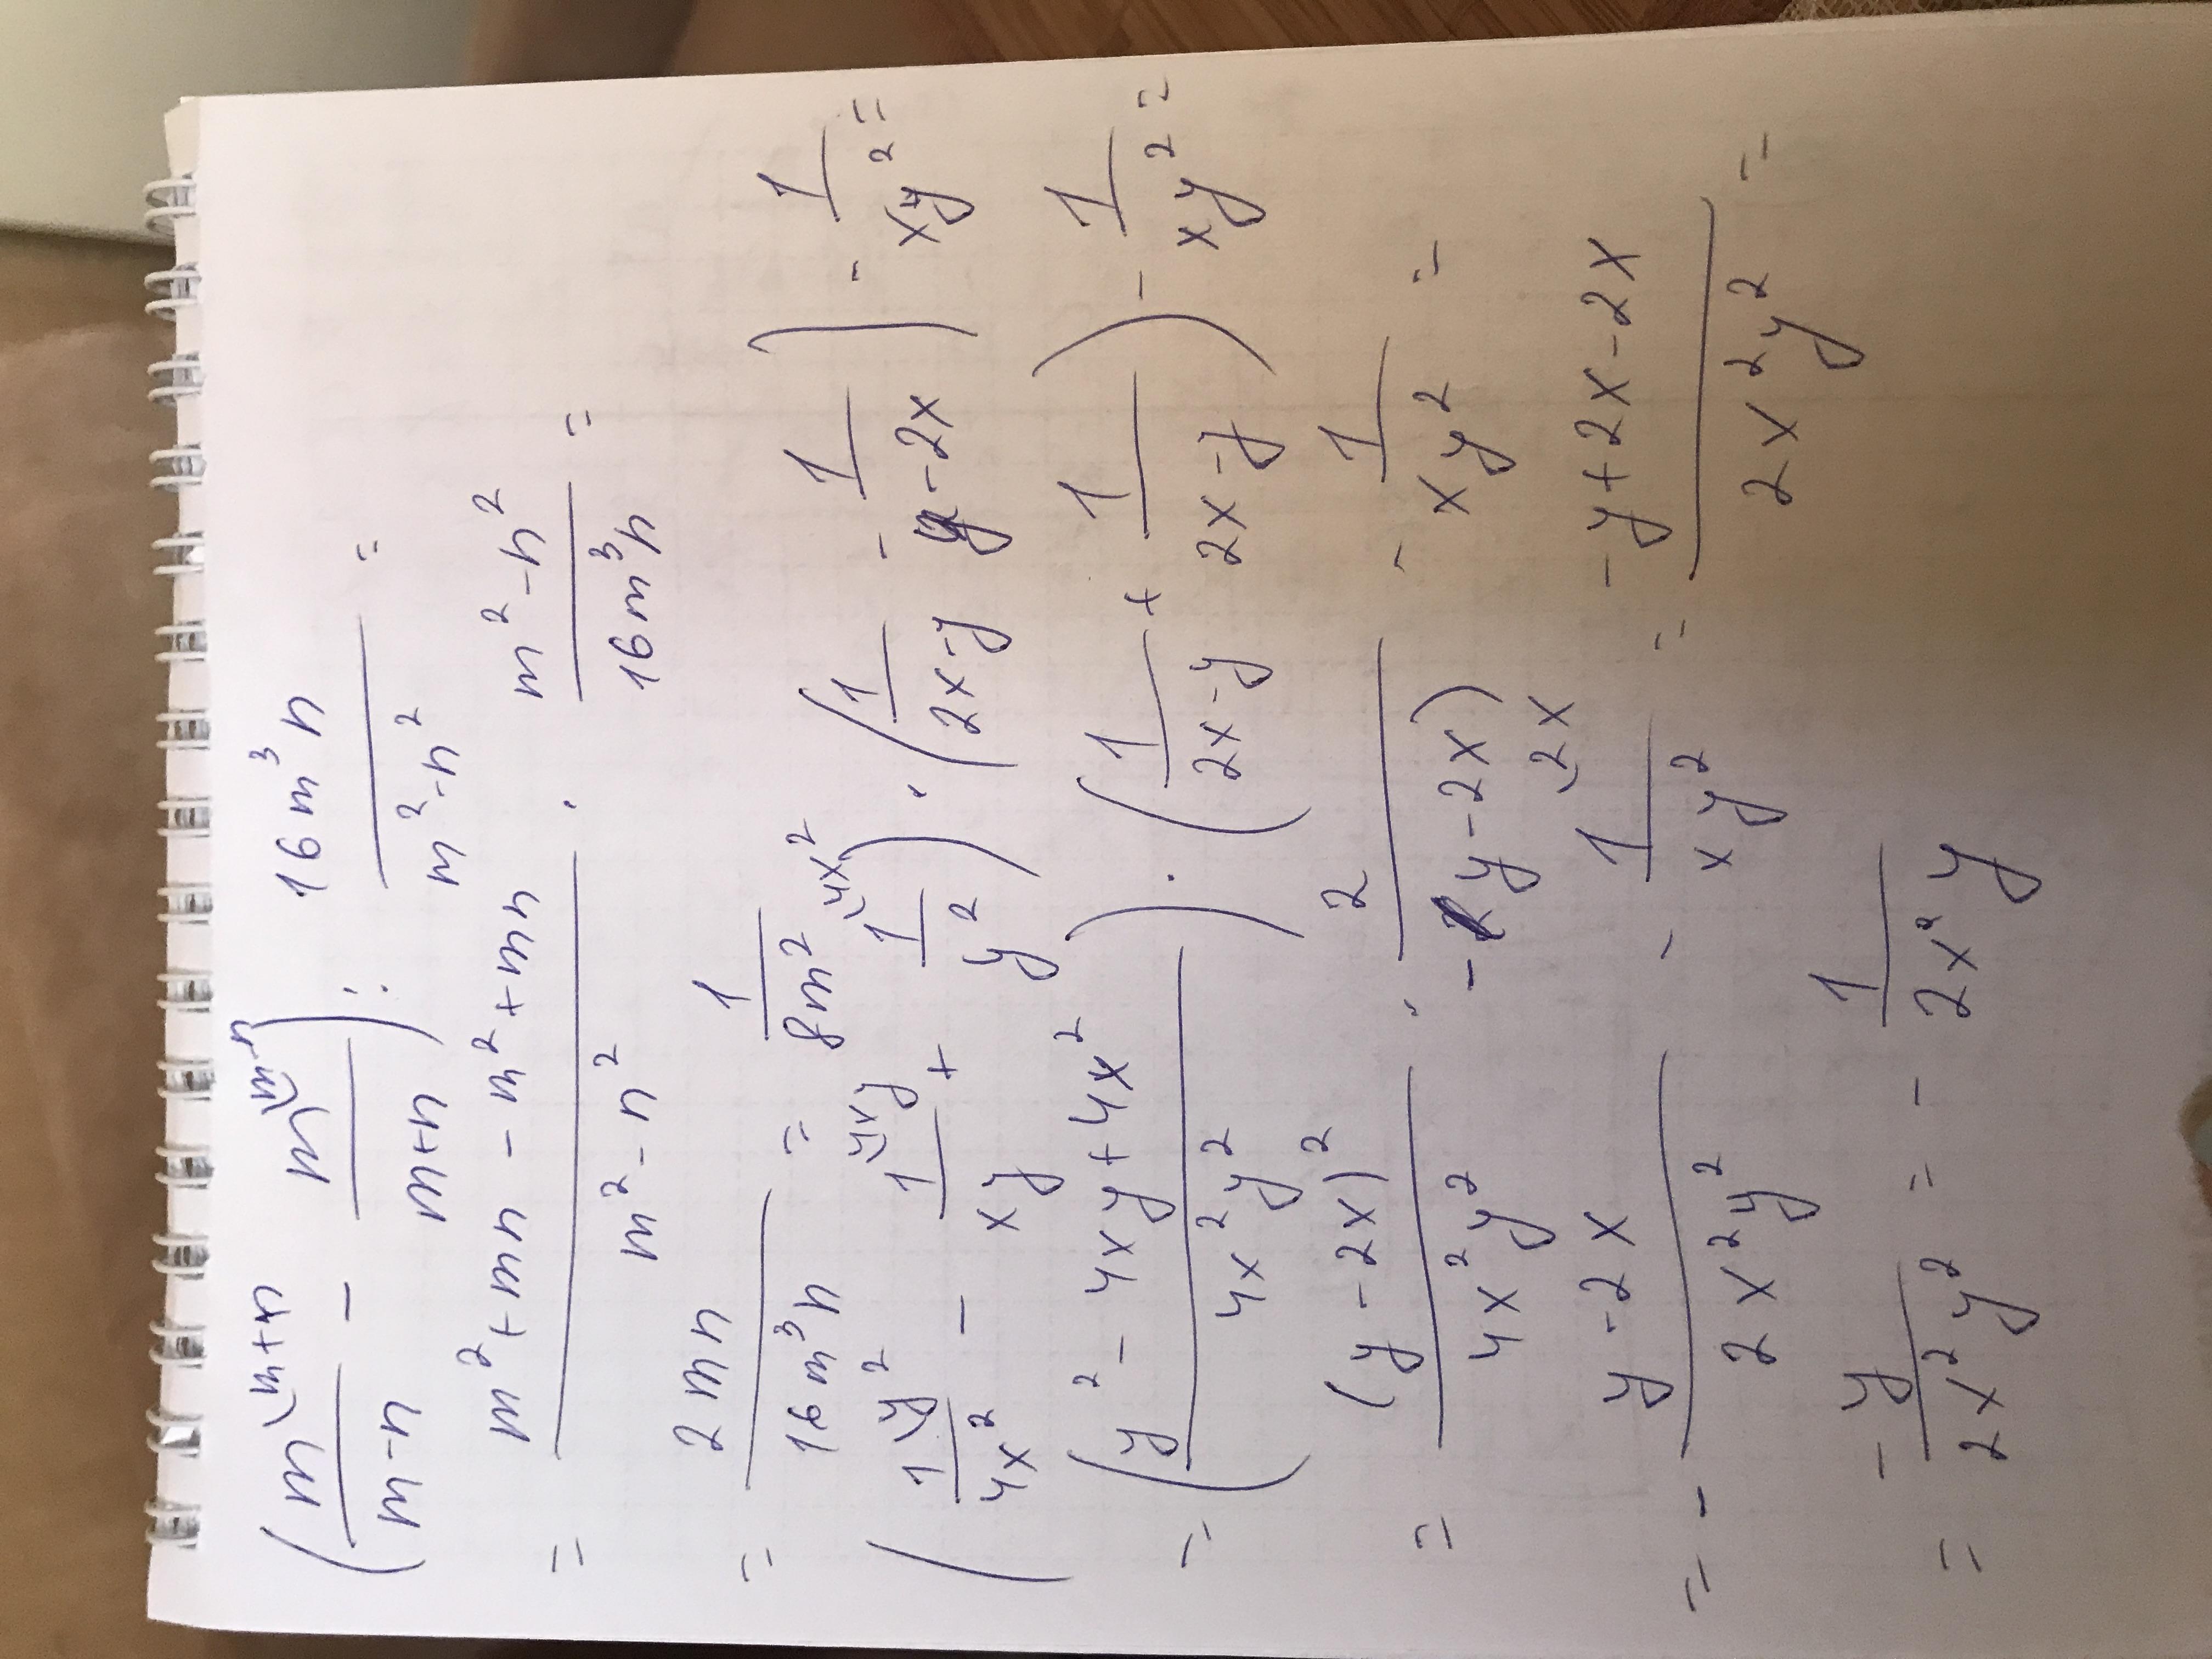 (m\m+n/(m-n) - m\m-n/(m+n)) : 16m³n/(m²-n²) =
= (m²+mn-m²+mn)/(m²-n²) · (m²-n²)/(16m³n) =
= 2mn/(16m³n) = 1/(8m²)
(1\y²/(4x²) - 1\4xy/(xy) + 1\4x²/(y²)) · (1/(2x-y) - 1/(y-2x)) - 1/(xy²) =
= ((y²-4xy+4x²)/(4x²y²)) · (1/(2x-y) + 1/(2x-y)) - 1/(xy²) =
= (y-2x)²/(4x²y²) · 2/(-(y-2x)) - 1/(xy²) =
= - (y-2x)/(2x²y²) - 1\2x/(xy²) = (-y+2x-2x)/(2x²y²) =
= -y/(2x²y²) = - 1/(2x²y)